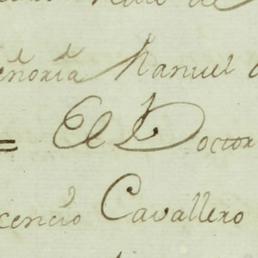 eñoría Manuel
= El Doctor
cencio Cavallero